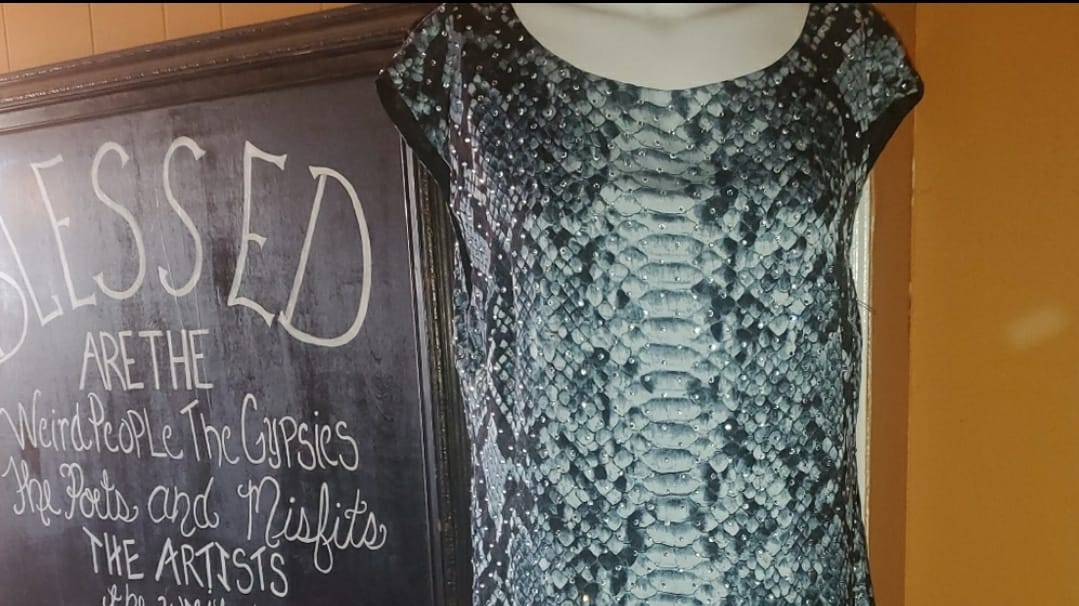 BLESSED
ARE THE
Weird People The Gypsies
The Poets and Misfits
THE ARTISTS
the